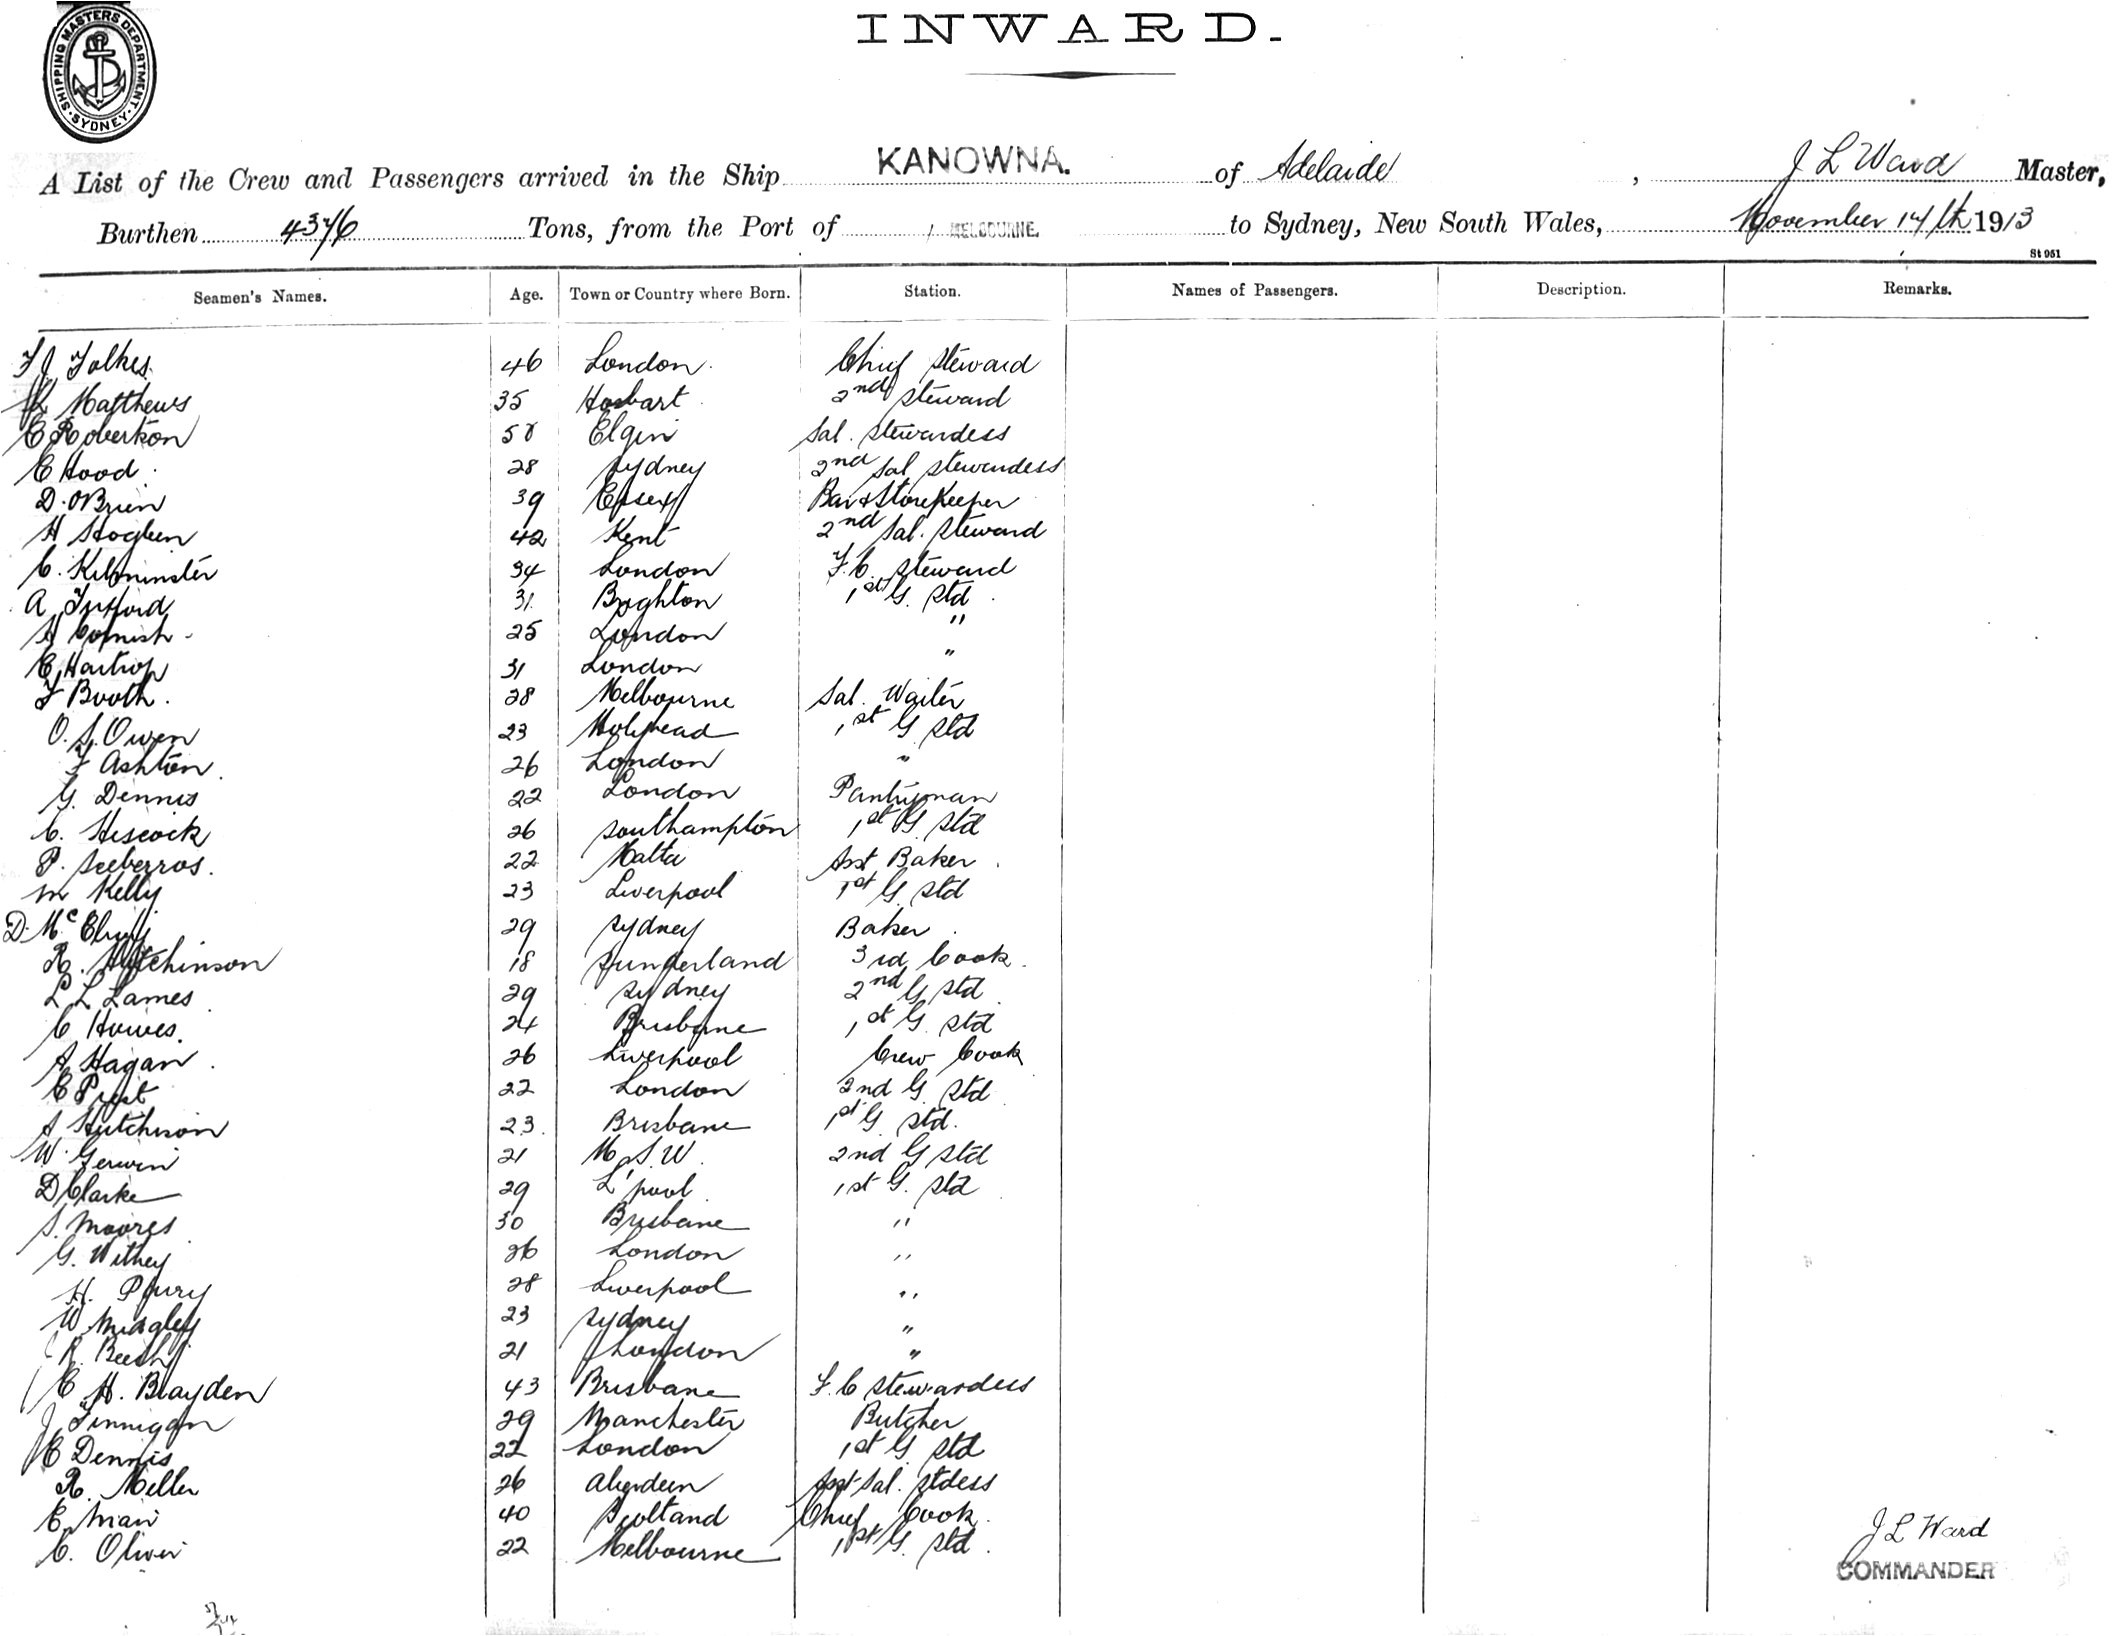 SHIPPING MASTERS DEPARTMENT · SYDNEY ·
INWARD.
A List of the Crew and Passengers arrived in the Ship KANOWNA. of Adelaide, J L Ward Master,
Burthen 4376 Tons, from the Port of MELBOURNE. to Sydney, New South Wales, November 14th 1913
St 951
Seamen's Names. Age. Town or Country where Born. Station. Names of Passengers. Description. Remarks.
F J Folkes. 46 London. Chief Steward
Matthews 35 Hobart. 2nd Steward
C Robertson 58 Elgin Sal. Stewardess
C Hood. 28 Sydney 2nd Sal Stewardess
D. O'Brien 39 Essex Bar & StoreKeeper
H Hogben 42 Kent 2nd Sal. Steward
C. Kilminster 34 London F.C. Steward
A 31. Brighton 1st G. Std.
H Cornish - 25 London "
C Hartrop 31 London "
F Booth. 28 Melbourne Sal. Waiter
O. S. Owen 23 Holyhead 1st G Std
F Ashton. 26 London "
G. Dennis 22 London Pantryman
C. Hiscock 26 Southampton 1st G. Std
P. Sceberras. 22 Malta Asst Baker.
M Kelly 23 Liverpool 1st G Std
D. McElroy 29 Sydney Baker.
R. Hutchinson 18 Sunderland 3rd Cook.
L L Lames 29 Sydney 2nd G Std
C Howes. 24 Brisbane 1st G. Std
A Hagan. 26 Liverpool Crew Cook
C 22 London 2nd G Std
A Hutchison 23. Brisbane 1st G. Std.
W. Gerwin 21 N.S.W. 2nd G Std
D Clarke 29 L'pool 1st G. Std
S. Moores 30 Brisbane "
G. Withey 26 London "
H. Pury 28 Liverpool "
W Midgley 23 Sydney "
R. 21 London "
C H. Brayden 43 Brisbane F.C Stewardess
J Finnigan 29 Manchester Butcher
C Dennis 22 London 1st G. Std
R. Meller 26 Aberdeen Asst Sal. Stdess
C. Mair 40 Scotland Chief Cook.
C. Oliver 22 Melbourne 1st G. Std.
J L Ward
COMMANDER